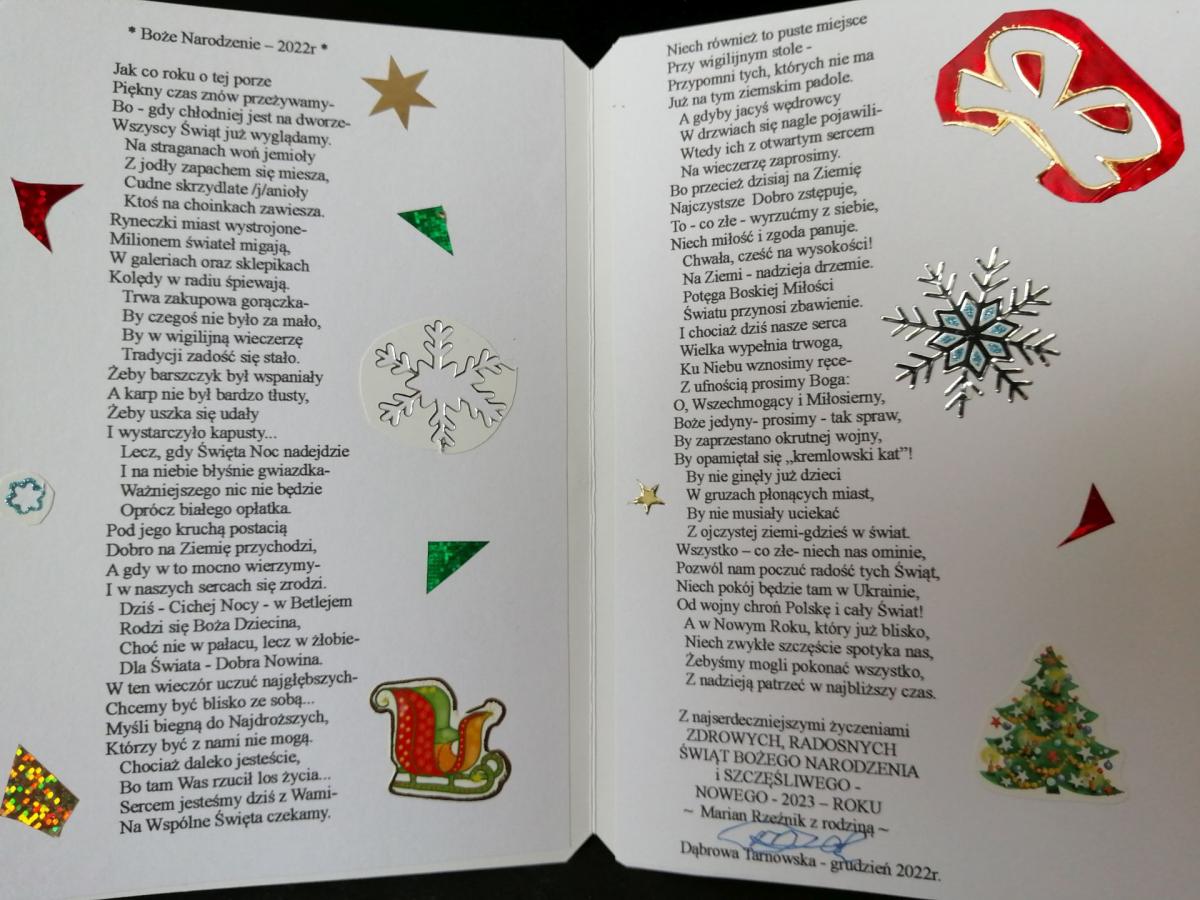 * Boże Narodzenie – 2022r *
Jak co roku o tej porze
Piękny czas znów przeżywamy-
Bo - gdy chłodniej jest na dworze-
Wszyscy Świąt już wyglądamy.
Na straganach woń jemioły
Z jodły zapachem się miesza,
Cudne skrzydlate /j/anioły
Ktoś na choinkach zawiesza.
Ryneczki miast wystrojone-
Milionem świateł migają,
W galeriach oraz sklepikach
Kolędy w radiu śpiewają.
Trwa zakupowa gorączka-
By czegoś nie było za mało,
By w wigilijną wieczerzę
Tradycji zadość się stało.
Żeby barszczyk był wspaniały
A karp nie był bardzo tłusty,
Żeby uszka się udały
I wystarczyło kapusty...
Lecz, gdy Święta Noc nadejdzie
I na niebie błyśnie gwiazdka-
Ważniejszego nic nie będzie
Oprócz białego opłatka.
Pod jego kruchą postacią
Dobro na Ziemię przychodzi,
A gdy w to mocno wierzymy-
I w naszych sercach się zrodzi.
Dziś - Cichej Nocy - w Betlejem
Rodzi się Boża Dziecina,
Choć nie w pałacu, lecz w żłobie-
Dla Świata - Dobra Nowina.
W ten wieczór uczuć najgłębszych-
Chcemy być blisko ze sobą...
Myśli biegną do Najdroższych,
Którzy być z nami nie mogą.
Chociaż daleko jesteście,
Bo tam Was rzucił los życia...
Sercem jesteśmy dziś z Wami-
Na Wspólne Święta czekamy.
Niech również to puste miejsce
Przy wigilijnym stole -
Przypomni tych, których nie ma
Już na tym ziemskim padole.
A gdyby jacyś wędrowcy
W drzwiach się nagle pojawili-
Wtedy ich z otwartym sercem
Na wieczerzę zaprosimy.
Bo przecież dzisiaj na Ziemię
Najczystsze Dobro zstępuje,
To - co złe - wyrzućmy z siebie,
Niech miłość i zgoda panuje.
Chwała, cześć na wysokości!
Na Ziemi - nadzieja drzemie.
Potęga Boskiej Miłości
Światu przynosi zbawienie.
I chociaż dziś nasze serca
Wielka wypełnia trwoga,
Ku Niebu wznosimy ręce-
Z ufnością prosimy Boga:
O, Wszechmogący i Miłosierny,
Boże jedyny- prosimy - tak spraw,
By zaprzestano okrutnej wojny,
By opamiętał się „kremlowski kat”!
By nie ginęły już dzieci
W gruzach płonących miast,
By nie musiały uciekać
Z ojczystej ziemi-gdzieś w świat.
Wszystko – co złe- niech nas ominie,
Pozwól nam poczuć radość tych Świąt,
Niech pokój będzie tam w Ukrainie,
Od wojny chroń Polskę i cały Świat!
A w Nowym Roku, który już blisko,
Niech zwykłe szczęście spotyka nas,
Żebyśmy mogli pokonać wszystko,
Z nadzieją patrzeć w najbliższy czas.
Z najserdeczniejszymi życzeniami
ZDROWYCH, RADOSNYCH
ŚWIĄT BOŻEGO NARODZENIA
i SZCZĘŚLIWEGO -
NOWEGO - 2023 – ROKU
~ Marian Rzeźnik z rodziną ~
Dąbrowa Tarnowska - grudzień 2022r.